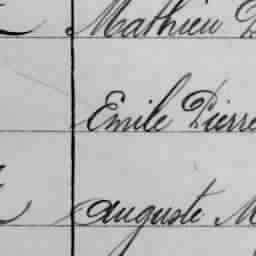 Mathieu
Emile Pierre
Auguste M